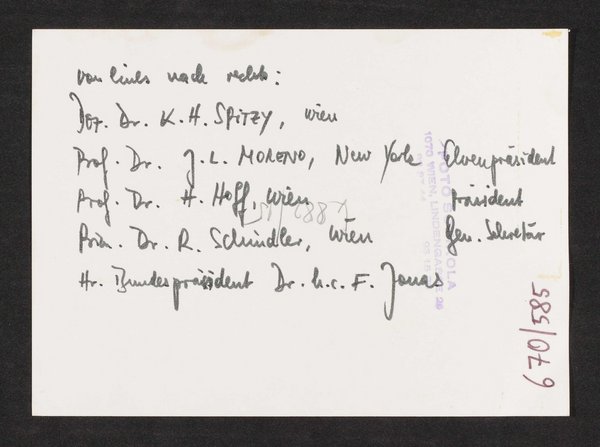 von links nach rechts:
Doz. Dr. K. H. SPITZY, Wien
Prof. Dr. J. L. MORENO, New York Ehrenpräsident
Prof. Dr. H. Hoff, Wien Präsident
Prim. Dr. R. Schindler, Wien Gen. Sekretär
Hr. Bundespräsident Dr. h.c. F. Jonas
670/585
1070 WIEN, LINDENGASSE